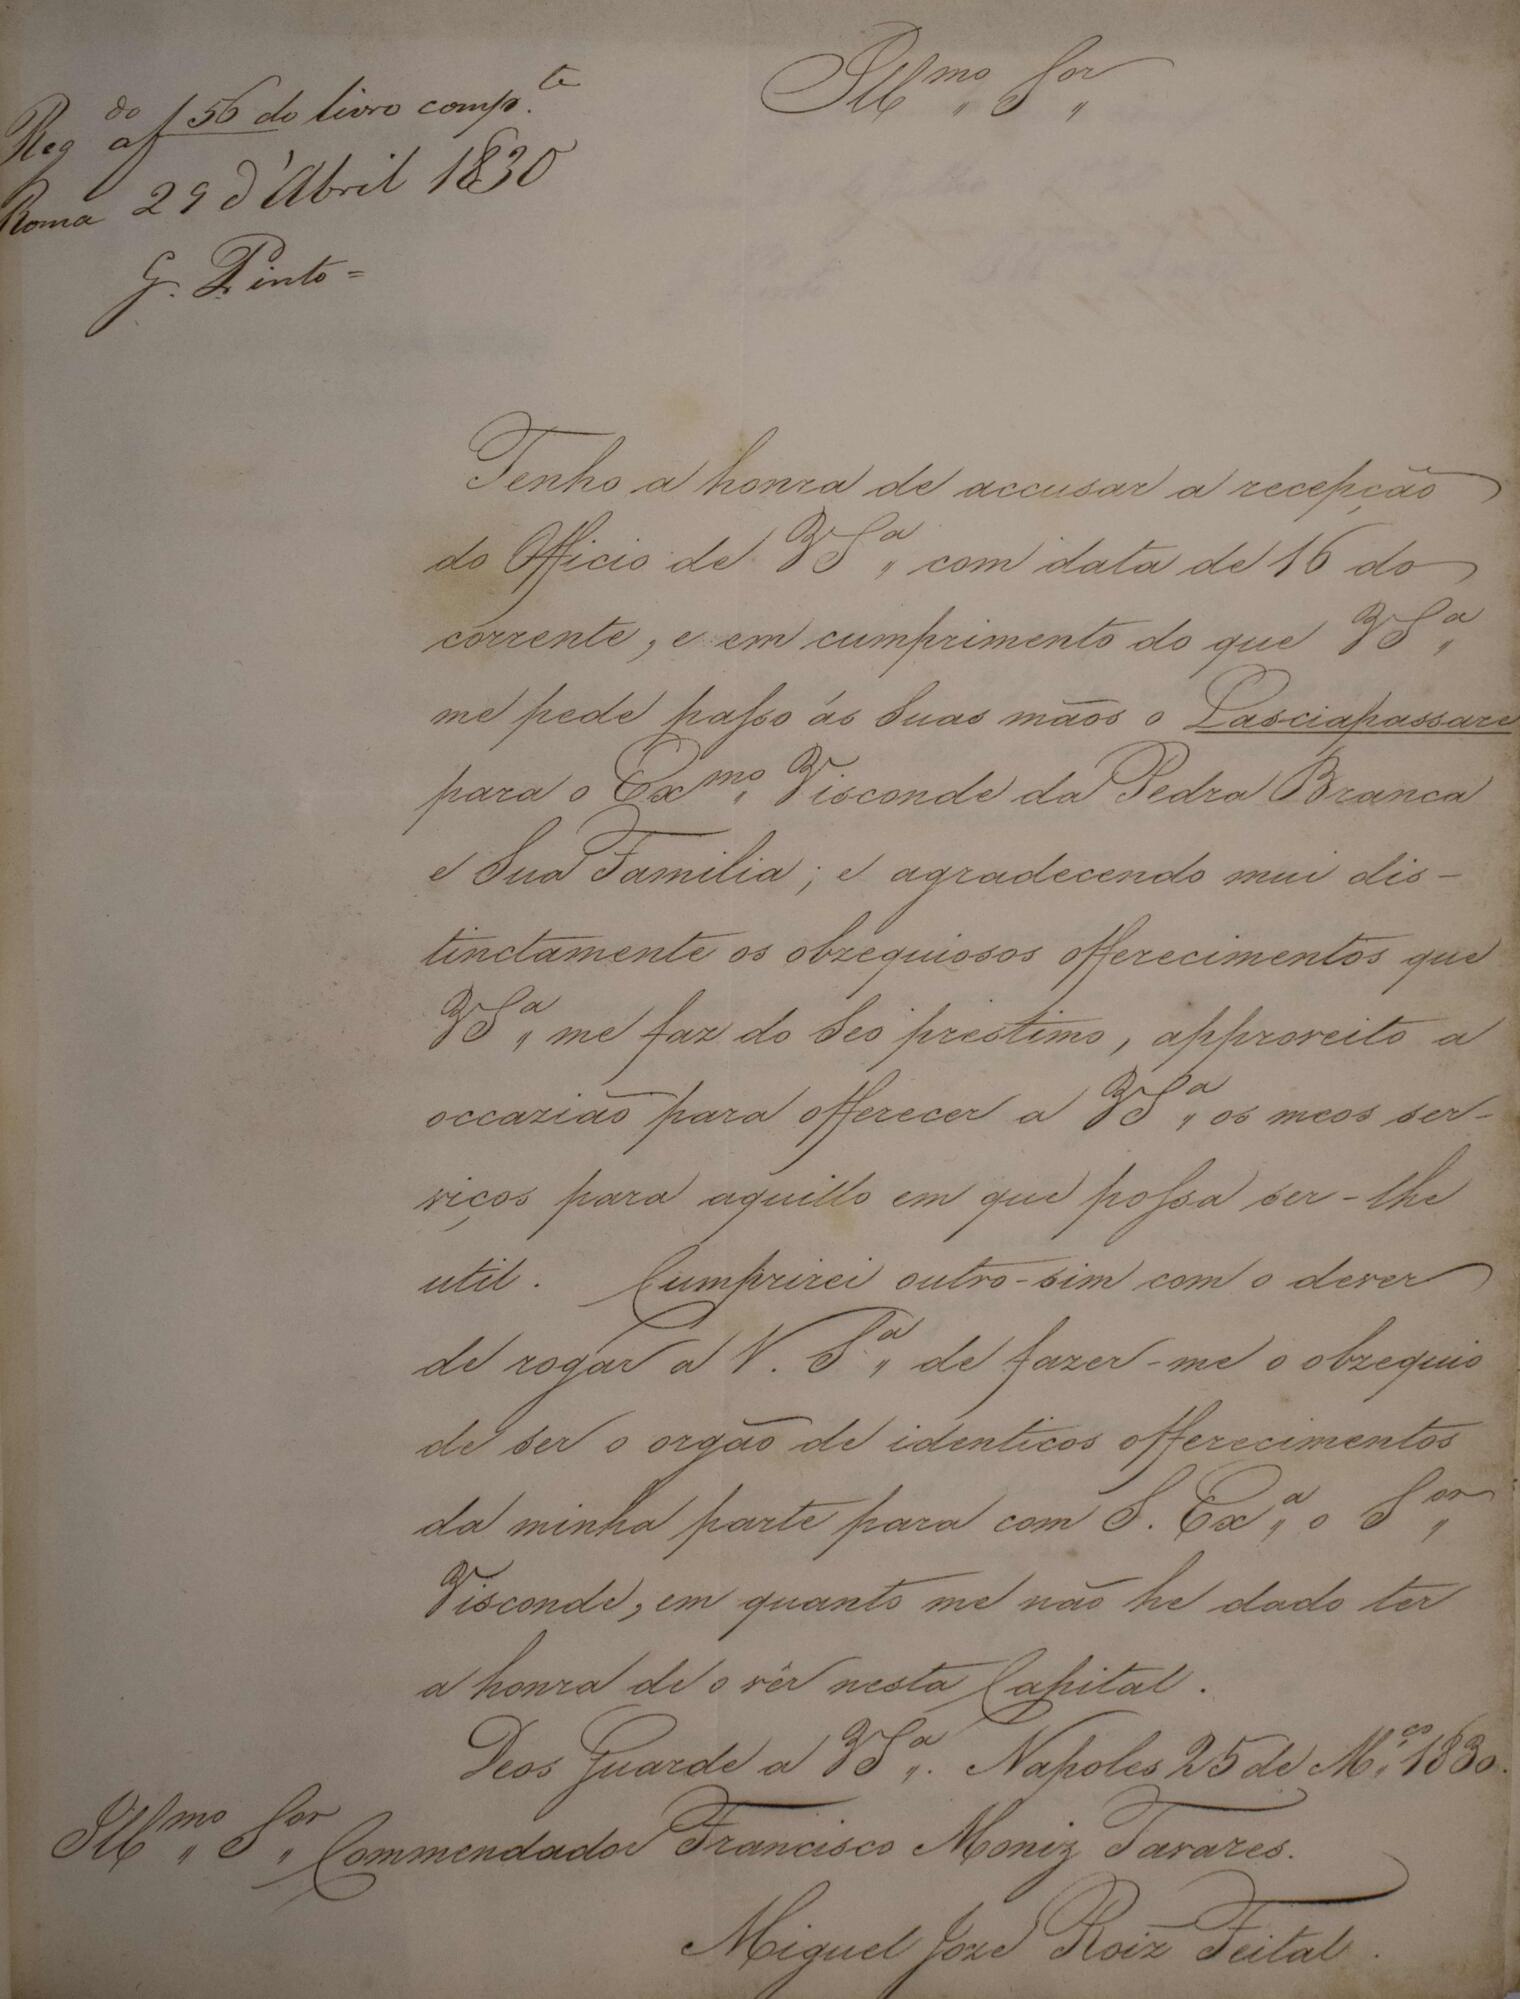 Reg.do a f 56 do livro comp.te
Roma 29 d'Abril 1830
G. Pinto =
Illmo Sor
Tenho a honra de accusar a recepção
do Officio de VSa com data de 16 do
corrente, e em cumprimento do que VSa
me pede passo ás suas mãos o Lasciapassare
para o Exmo Visconde da Pedra Branca
e Sua Familia; e agradecendo mui dis-
tinctamente os obzequiosos offerecimentos que
VSa me faz do Seo prestimo, approveito a
occazião para offerecer a VSa os meos ser-
viços para aquillo em que possa ser-lhe
util. Cumprirei outro-sim com o dever
de rogar a V. Sa de fazer-me o obzequio
de ser o orgão de identicos offerecimentos
da minha parte para com S. Exa o Sor
Visconde, em quanto me não he dado ter
a honra de o vêr nesta Capital.
Deos Guarde a VSa. Napoles 25 de Mço 1830.
Illmo Sor Commendador Francisco Moniz Tavares.
Miguel Joze Roiz Feital.